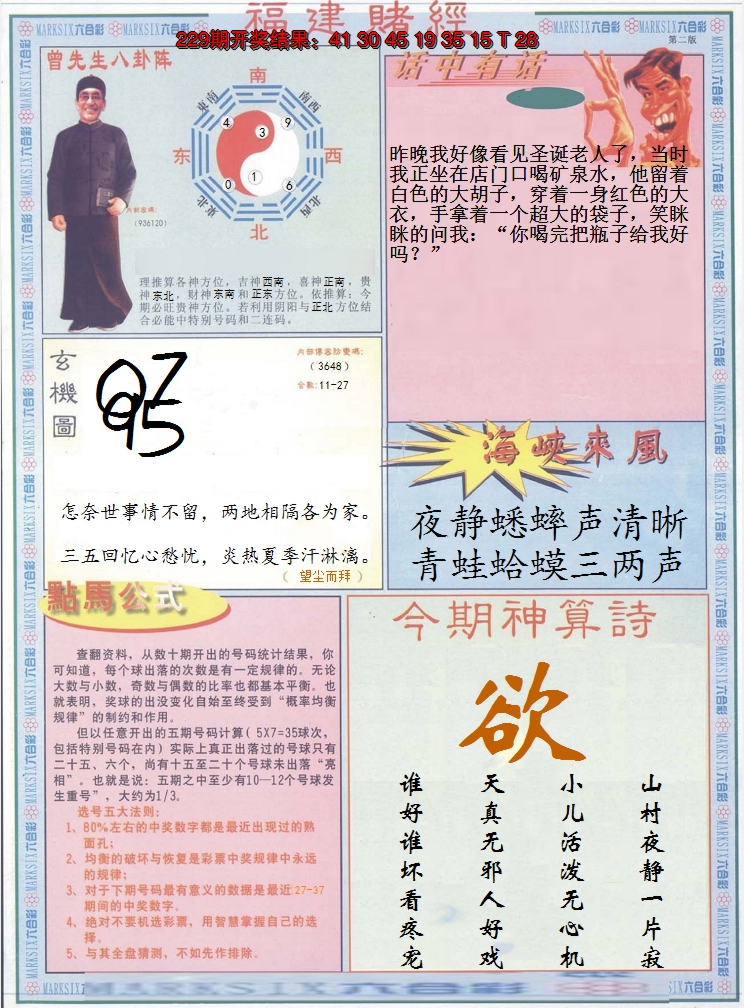 福建賭經
229期开奖结果：41 30 45 19 35 15 T 28
第二版
曾先生八卦阵
南
东南
西南
4
9
3
东
西
1
0
6
东北
西北
北
内部密碼:
(936120)
理推算各神方位，吉神西南，喜神正南，贵
神东北，财神东南和正东方位。依推算：今
期必旺贵神方位。若利用阴阳与正北方位结
合必能中特别号码和二连码。
话中有话
昨晚我好像看见圣诞老人了，当时
我正坐在店门口喝矿泉水，他留着
白色的大胡子，穿着一身红色的大
衣，手拿着一个超大的袋子，笑眯
眯的问我：“你喝完把瓶子给我好
吗？”
玄機圖
07
95
(3648)
合数:11-27
怎奈世事情不留，两地相隔各为家。
三五回忆心愁忧，炎热夏季汗淋漓。
（ 望尘而拜 ）
海峽來風
夜静蟋蟀声清晰
青蛙蛤蟆三两声
點馬公式
查翻资料，从数十期开出的号码统计结果，你
可知道，每个球出落的次数是有一定规律的。无论
大数与小数，奇数与偶数的比率也都基本平衡。也
就表明，奖球的出没变化自始至终受到“概率均衡
规律”的制约和作用。
但以任意开出的五期号码计算( 5X7=35球次，
包括特别号码在内) 实际上真正出落过的号球只有
二十五、六个，尚有十五至二十个号球未出落“亮
相”。也就是说：五期之中至少有10—12个号球发
生重号”，大约为1/3。
选号五大法则:
1、80%左右的中奖数字都是最近出现过的熟
面孔；
2、均衡的破坏与恢复是彩票中奖规律中永远
的规律；
3、对于下期号码最有意义的数据是最近27-37
期间的中奖数字。
4、绝对不要机选彩票，用智慧掌握自己的选
择。
5、与其全盘猜测，不如先作排除。
今期神算詩
欲
山村夜静一片寂
小儿活泼无心机
天真无邪人好戏
谁好谁坏看疼宠
MARKSIX六合彩